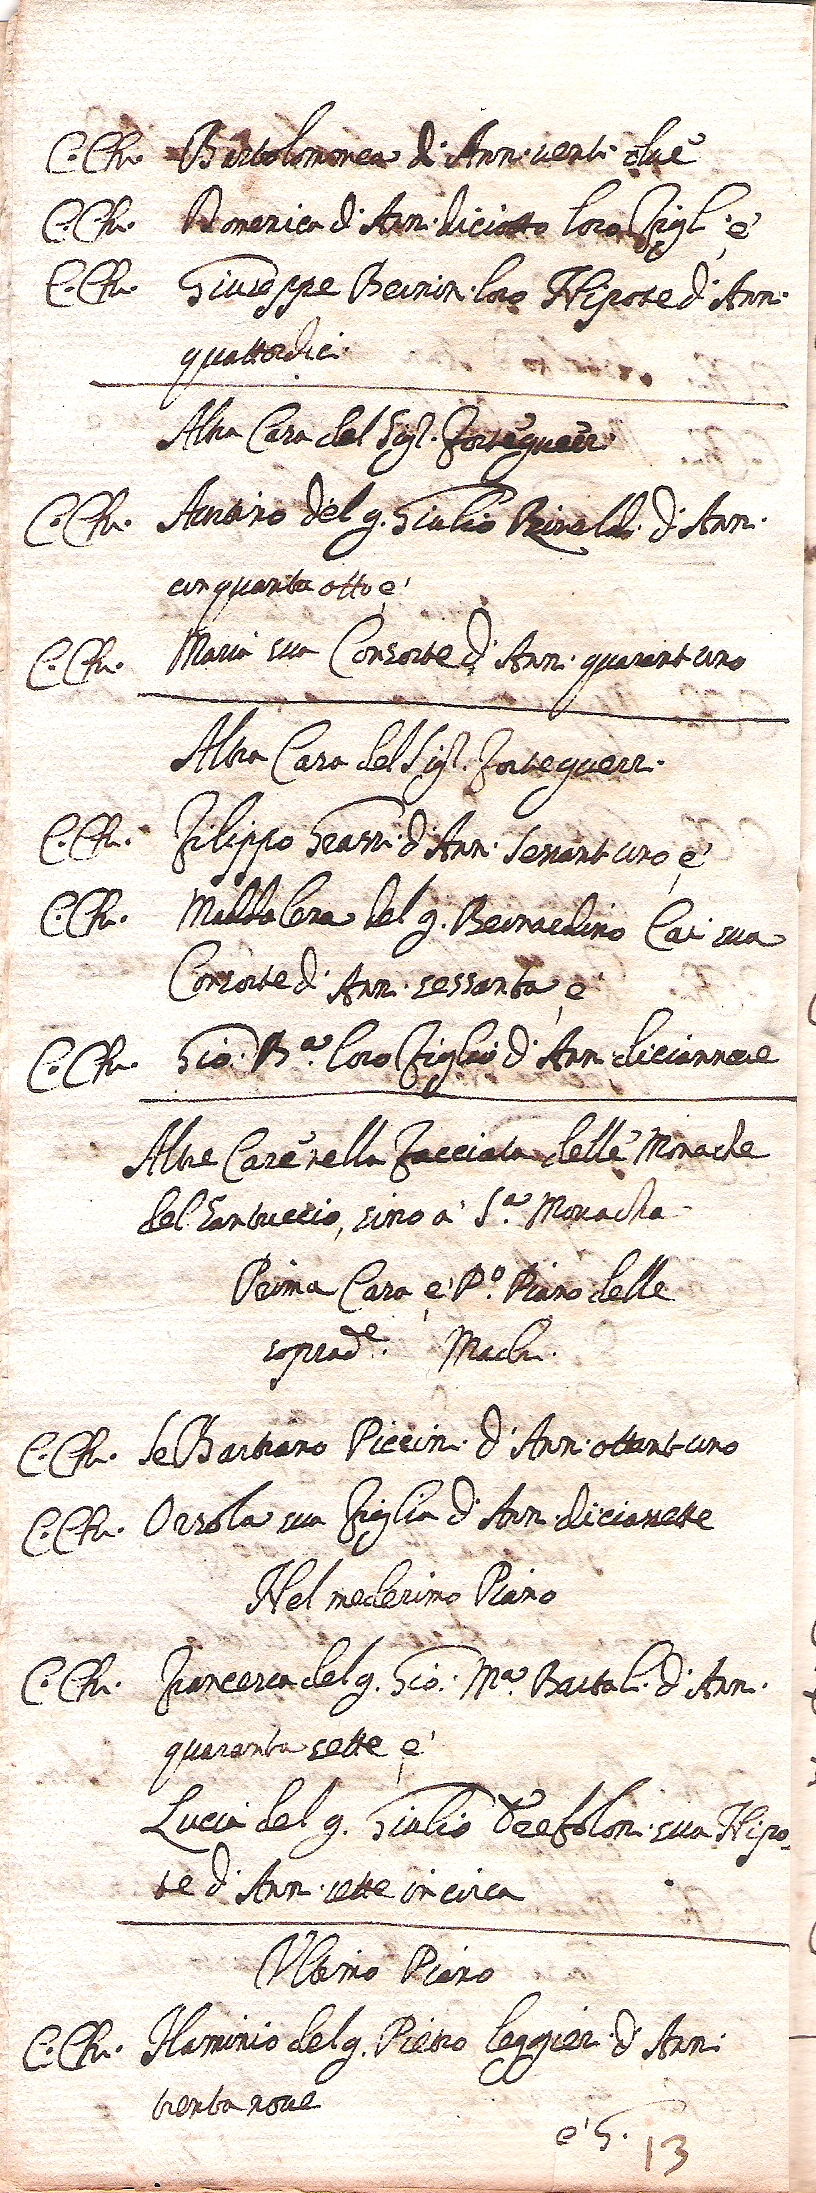 C. Ch. Bartolomea d'Ann. venti due
C. Ch. Domenica d'Ann. diciotto loro Figl. e'
C. Ch. Giuseppe Bernin. loro Nipote d'Ann.
quattordici.
Altra Casa del Sig.r Forteguerr.
C. Ch. del q. Giulio Rinaldi d'Ann.
cinquanta otto e'
C. Ch. Maria sua Consorte d'Ann. quarant'uno
Altra Casa del Sig.r Forteguerr.
C. Ch. Filippo d'Ann. sessant'uno e'
C. Ch. Maddalena del q. Bernardino sua
Consorte d'Ann. sessanta e'
C. Ch. Gio: B.a loro Figlio d'Ann. diciannove
Altre Case nella Facciata delle Monache
del Santuccio, sino a' S.a Monacha
Prima Casa e' P.o Piano delle
soprad.e Mach.
C. Ch. Se Bastiano Piccin. d'Ann. ottant'uno
C. Ch. Orsola sua Figlia d'Ann. diciasette
Nel medesimo Piano
C. Ch. Francesca del q. Gio: M.a Bartali d'Ann.
quaranta sette e'
Lucia del q. Giulio sua Nipo-
te d'Ann. sette in circa
Ultimo Piano
C. Ch. Flaminio del q. Pietro Leggier. d'Ann.
trenta nove
e' G.
13